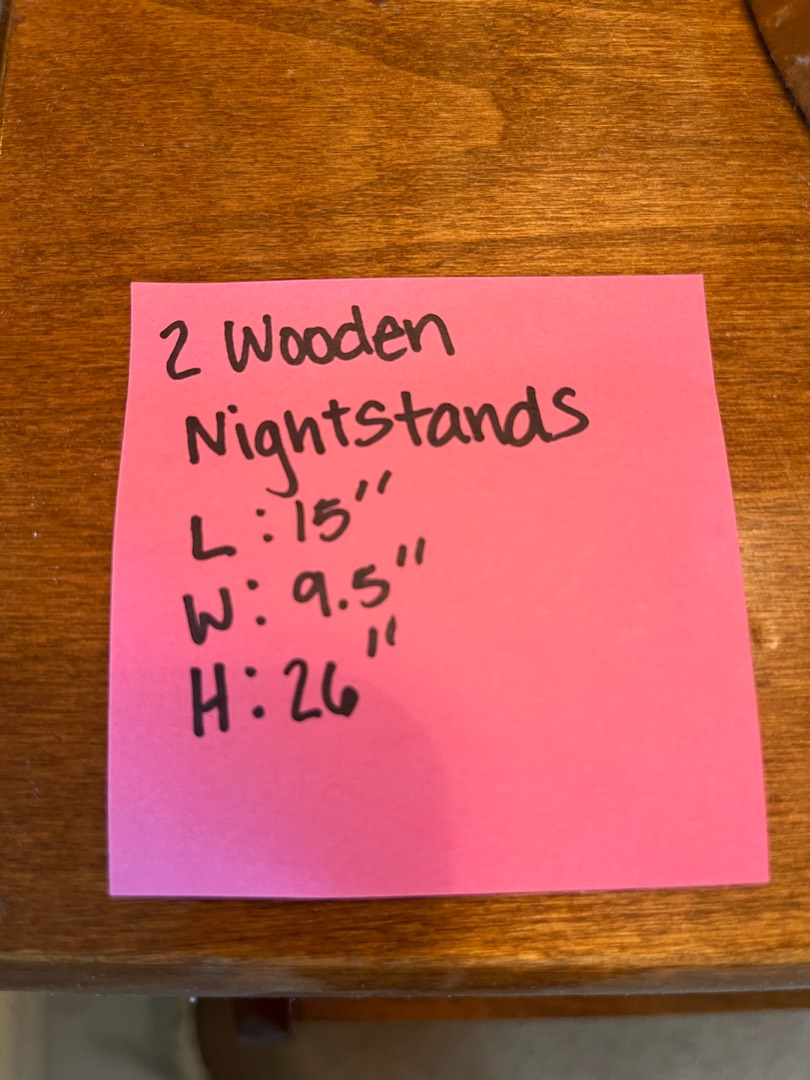 2 Wooden
Nightstands
L: 15"
W: 9.5"
H: 26"